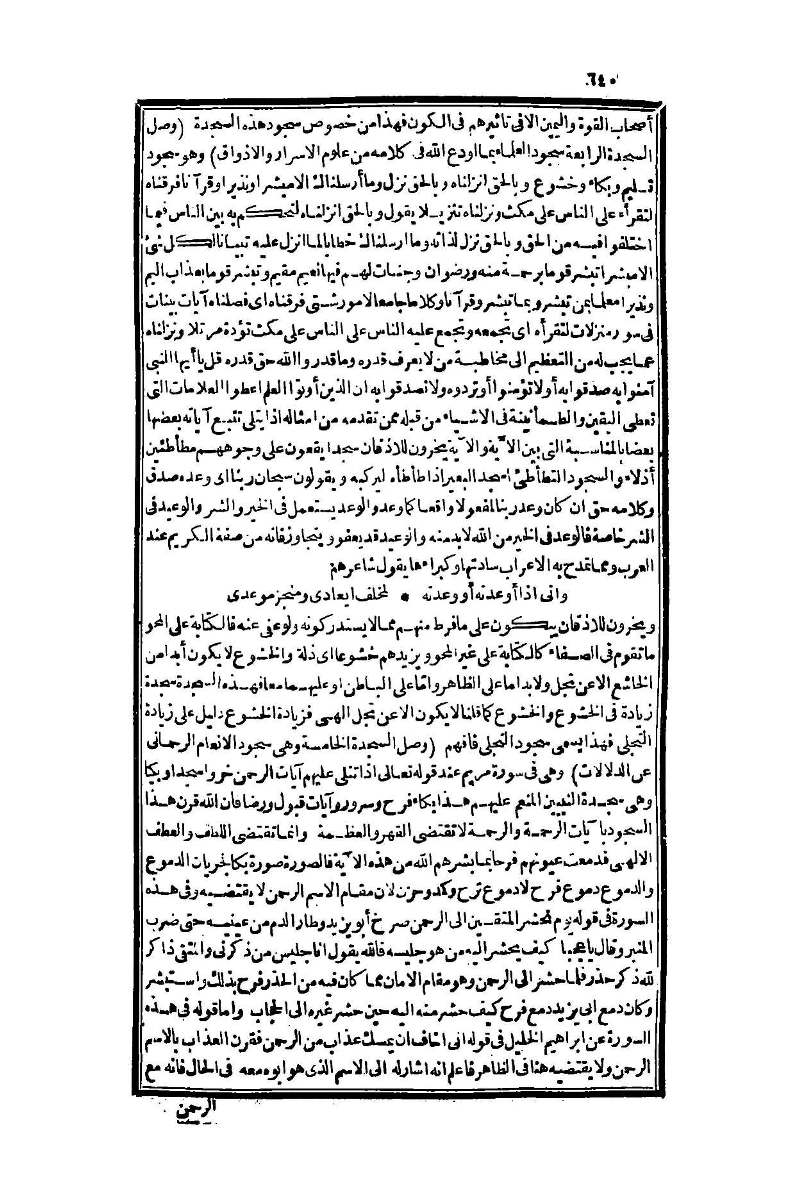 ٦٤٠
أصحاب القوة واليمين الا فى تاثيرهم فى الكون فهذا من خصوص سجود هذه السجدة (وصل
السجدة الرابعة سجود العلماء بما اودع الله فى كلامه من علوم الاسرار والاذواق) وهو سجود
تسليم وبكاء وخشوع وبالحق انزلناه وبالحق نزل وما أرسلناك الا مبشرا ونذيرا وقرآنا فرقناه
لتقرأه على الناس على مكث ونزلناه تنزيلا يقول وبالحق انزلناه لتحكم به بين الناس فيما
اختلفوا فيه من الحق وبالحق نزل لذاته وما ارسلناك خطابا لما انزل عليه تبيانا لكل شئ
الا مبشرا تبشر قوما برحمة منه ورضوان وجنات لهم فيها نعيم مقيم وتبشر قوما بعذاب اليم
ونذيرا معلما بمن تبشر وبما تبشر وقرآنا وكلاما جامعا لامور شتى فرقناه اى فصلناه آيات بينات
فى سور منزلات لتقرأه اى تجمعه وتجمع عليه الناس على الناس على مكث تؤدة مرتلا ونزلناه
عما يجب له من التعظيم الى مخاطبة من لا يعرف قدره وما قدروا الله حق قدره قل يا أيها النبى
آمنوا به صدقوا به أو لا تؤمنوا أو تردوه ولا تصدقوا به ان الذين أوتوا العلم اعطوا العلامات التى
تعطى اليقين والطمأنينة فى الاشياء من قبله ممن تقدمه من امثاله اذا يتلى تتبع آياته بعضها
بعضا بالمناسبة التى بين الآية والآية يخرون للاذقان سجدا يقعون على وجوههم مطأطئين
أذلاء والسجود التطأطئ اسجد البعير اذا طأطأه ليركبه ويقولون سبحان ربنا اى وعده صدق
وكلامه حق ان كان وعد ربنا لمفعولا واقعا كما وعد والوعد يستعمل فى الخير والشر والوعيد فى
الشر خاصة فالوعد فى الخير من الله لا بد منه والوعيد قد يعفو ويتجاوز فانه من صفة الكريم عند
العرب ومما تمدح به الاعراب سادتها وكبراءها يقول شاعرهم
وانى اذا أوعدته أو وعدته * لمخلف ايعادى ومنجز موعدى
ويخرون للاذقان يبكون على ما فرط منهم مما لا يستدركونه ولو عفى عنه فالكتابة على المحو
ما تقوم فى الصفاء كالكتابة على غير المحو ويزيدهم خشوعا اى ذلة والخشوع لا يكون أبدا من
الخاشع الا عن تجل ولا بد اما على الظاهر واما على الباطن او عليهما معا فهذه السجدة سجدة
زيادة فى الخشوع والخشوع كما قلنا لا يكون الا عن تجل الهى فزيادة الخشوع دليل على زيادة
التجلى فهذا يسمى سجود التجلى فافهم (وصل السجدة الخامسة وهى سجود الانعام الرحمانى
عن الدلالات) وهى فى سورة مريم عند قوله تعالى اذا تتلى عليهم آيات الرحمن خروا سجدا وبكيا
وهى سجدة النبيين المنعم عليهم هذا بكاء فرح وسرور وآيات قبول ورضا فان الله قرن هذا
السجود بآيات الرحمة والرحمة لا تقتضى القهر والعظمة وانما تقتضى اللطف والعطف
الالهى فدمعت عيونهم فرحا بما بشرهم الله من هذه الآية فالصورة صورة بكا لجريات الدموع
والدموع دموع فرح لا دموع ترح وكمد وحزن لان مقام الاسم الرحمن لا يقتضيه وفى هذه
السورة فى قوله يوم نحشر المتقين الى الرحمن صرخ أبو يزيد وطار الدم من عينيه حتى ضرب
المنبر وقال يا عجبا كيف يحشر اليه من هو جليسه فالله يقول انا جليس من ذكرنى والمتقى ذاكر
لله ذكر حذر فلما حشر الى الرحمن وهو مقام الامان مما كان فيه من الحذر فرح بذلك واستبشر
وكان دمع ابى يزيد دمع فرح كيف حشر منه اليه حين حشر غيره الى الحجاب واما قوله فى هذه
السورة عن ابراهيم الخليل فى قوله انى اخاف ان يمسك عذاب من الرحمن فقرن العذاب بالاسم
الرحمن ولا يقتضيه هنا فى الظاهر فاعلم انه اشار له الى الاسم الذى هو ابوه معه فى الحال فانه مع
الرحمن